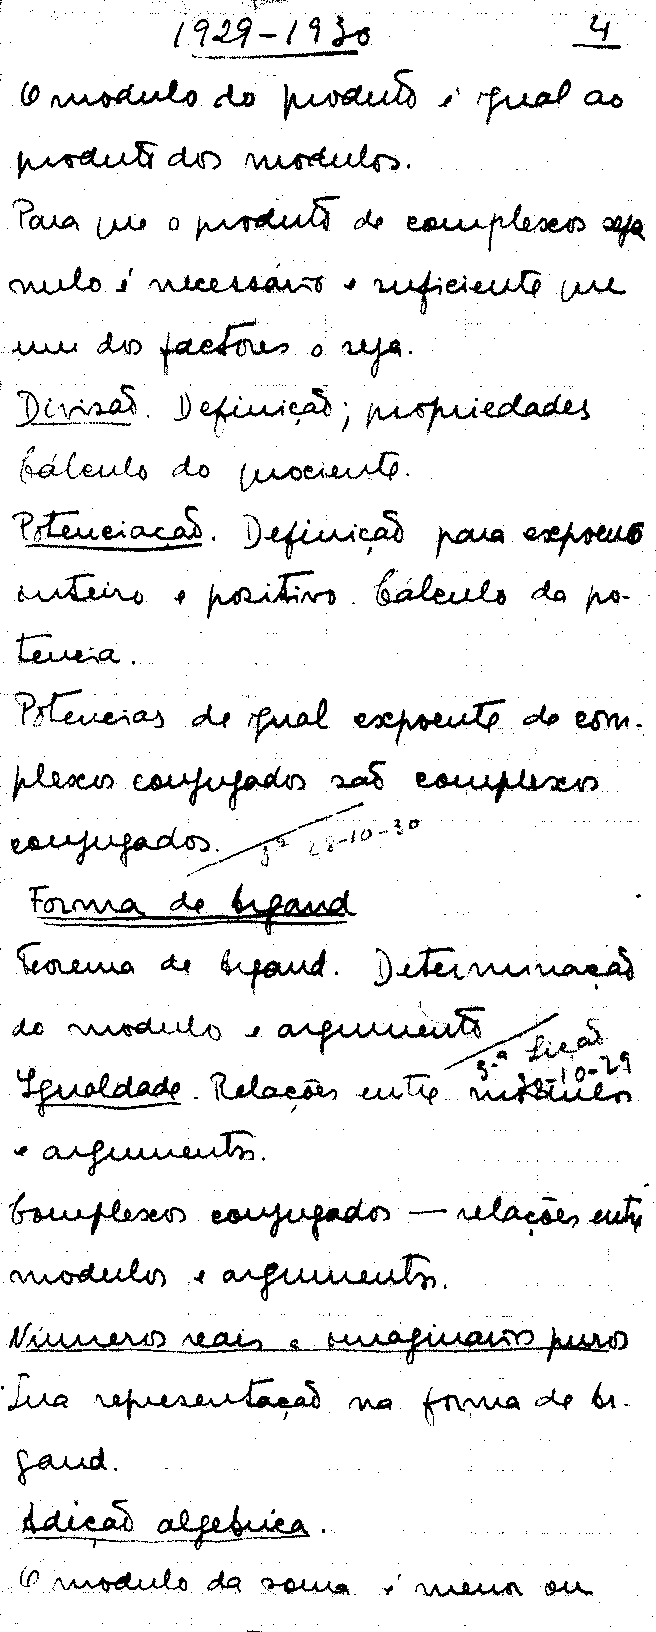 1929-1930 4
O modulo do produto é igual ao
produto dos modulos.
Para que o produto de complexos seja
nulo é necessário e suficiente que
um dos factores o seja.
Divisão. Definição; propriedades
Cálculo do quociente.
Potenciação. Definição para expoente
inteiro e positivo. Cálculo da po-
tencia.
Potencias de igual expoente de com-
plexos conjugados são complexos
conjugados. 3ª 28-10-30
Forma de Argand
Teorema de Argand. Determinação
do modulo e argumento
3.ª Lição
-10-29
Igualdade. Relações entre modulos
e argumentos.
Complexos conjugados — relações entre
modulos e argumentos.
Números reais e imaginarios puros
Sua representação na forma de Ar-
gand.
Adição algebrica.
O modulo da soma é menor ou